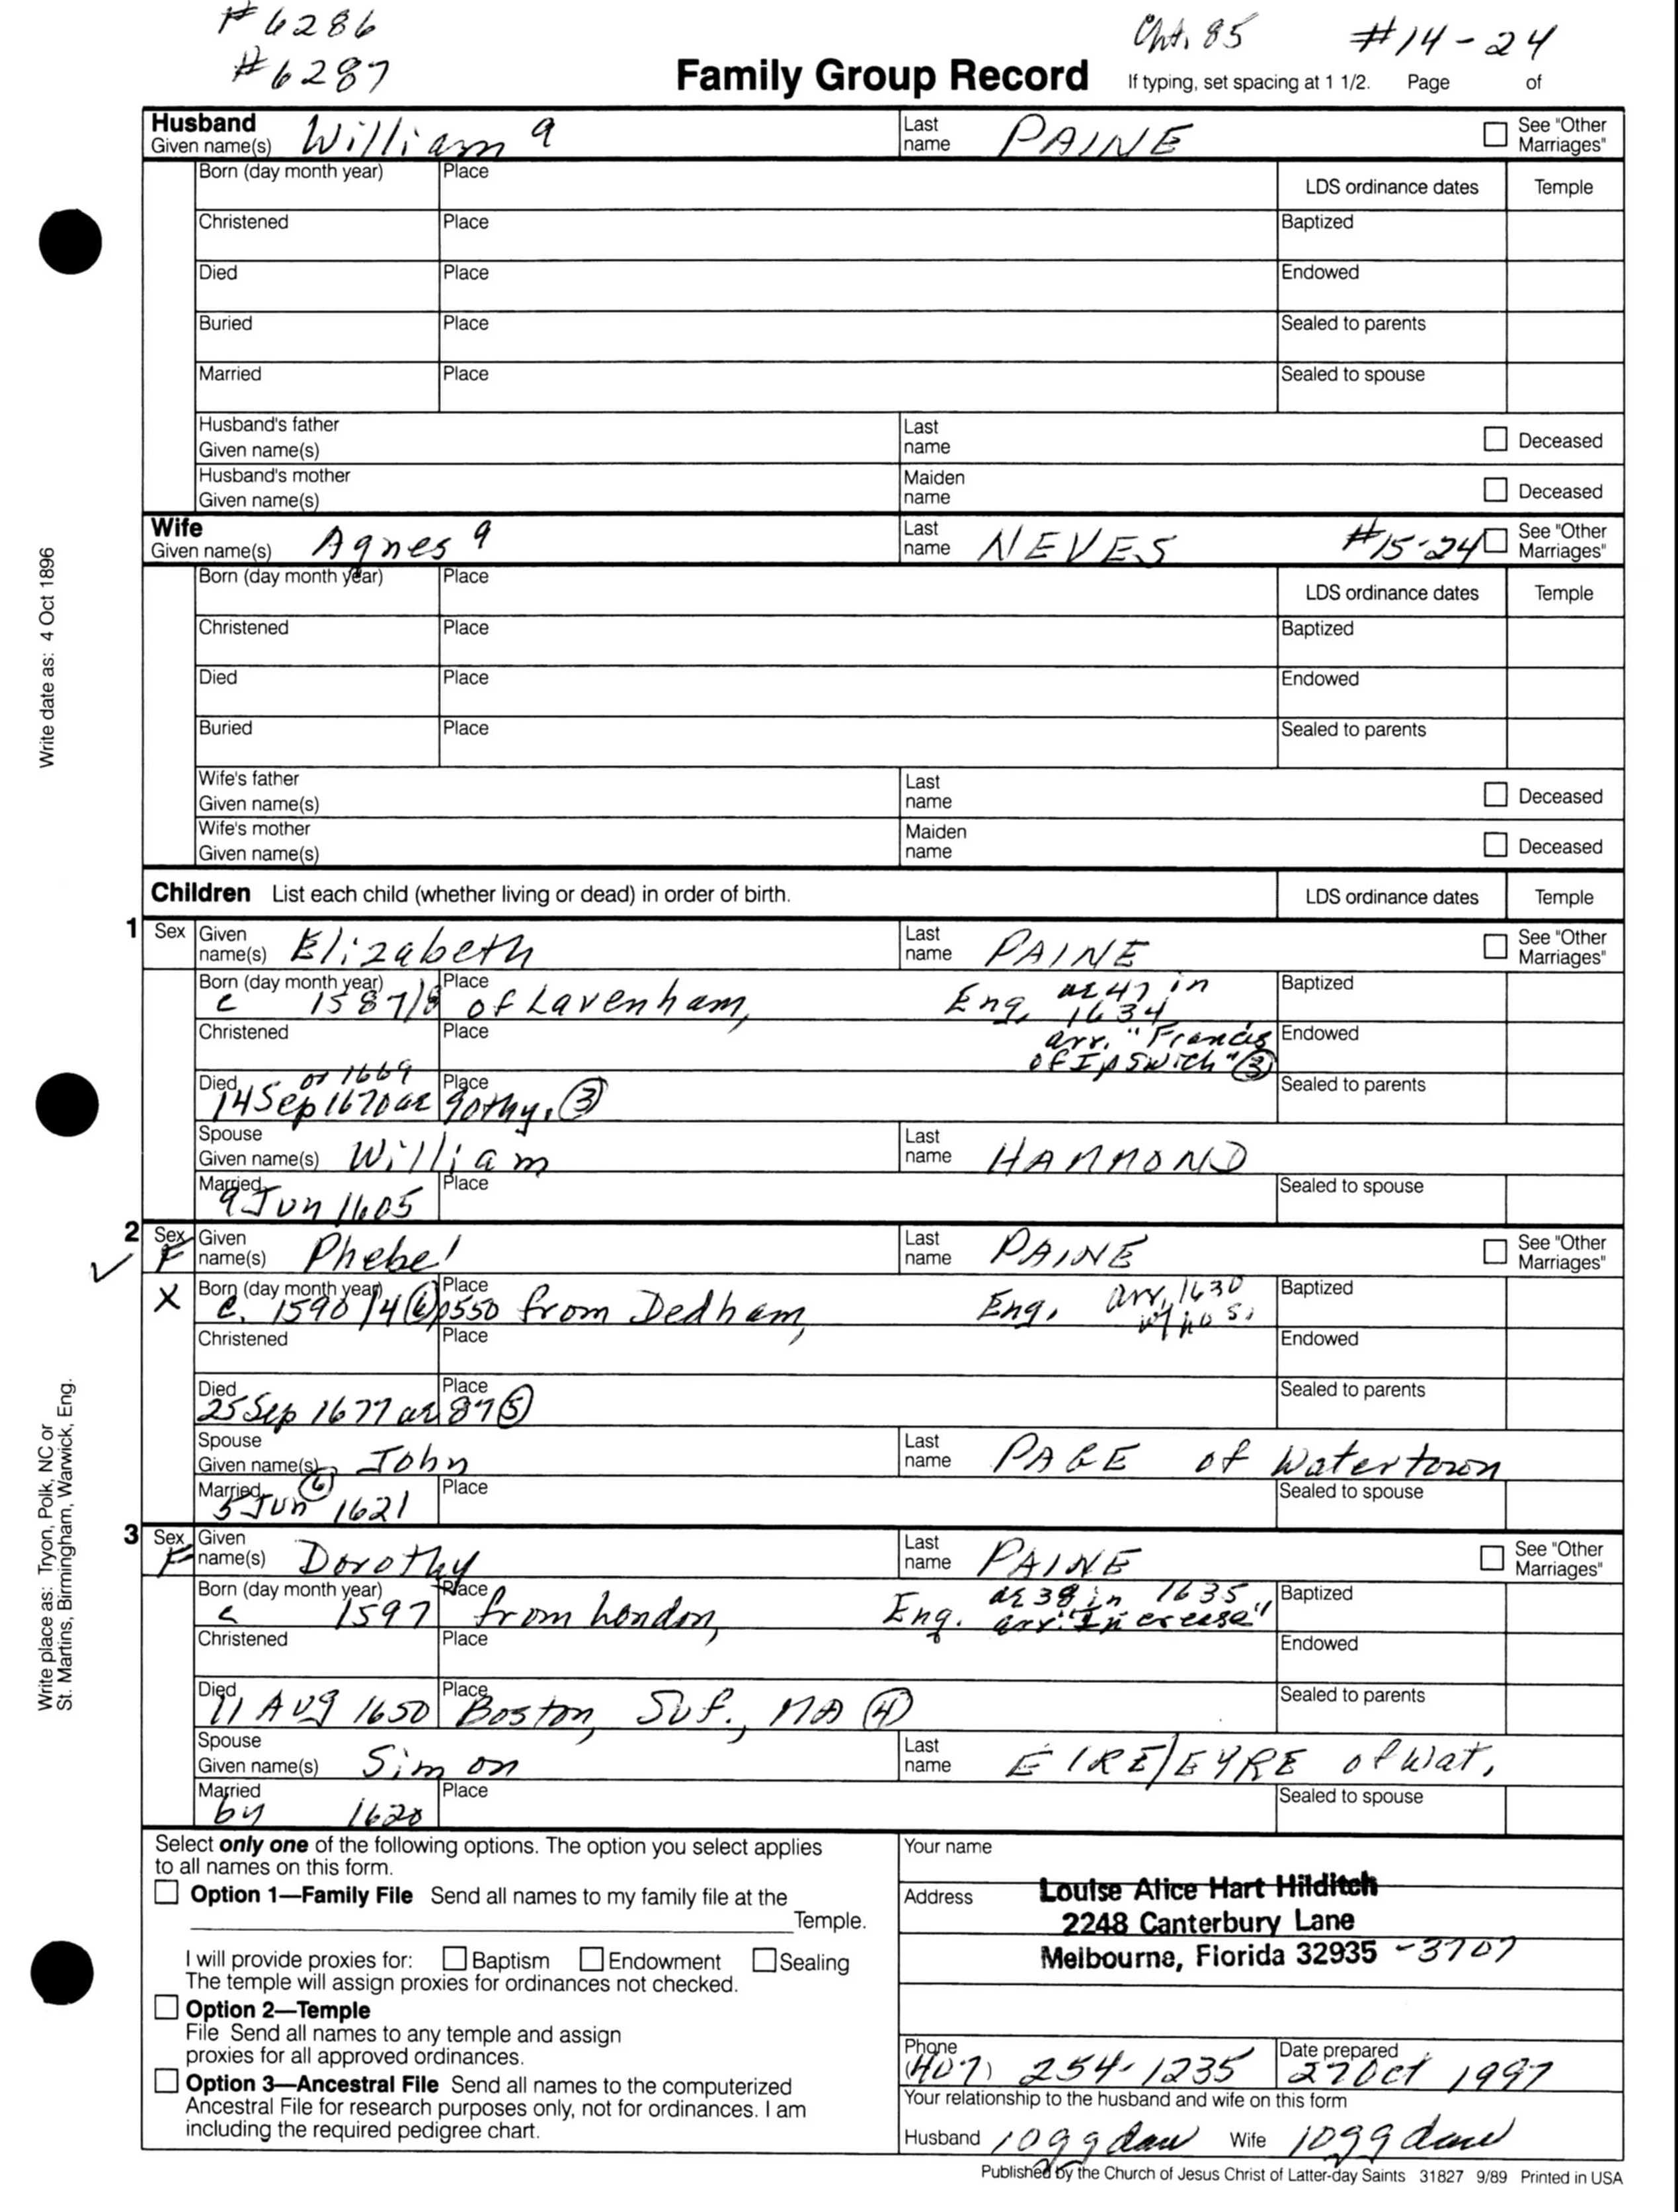 #6286
#6287
Cht. 85 #14-24
Family Group Record If typing, set spacing at 1 1/2. Page of
Husband
Given name(s) William 9 Last name PAINE See "Other Marriages"
Born (day month year) Place LDS ordinance dates Temple
Christened Place Baptized
Died Place Endowed
Buried Place Sealed to parents
Married Place Sealed to spouse
Husband's father
Given name(s) Last name Deceased
Husband's mother
Given name(s) Maiden name Deceased
Wife
Given name(s) Agnes 9 Last name NEVES #15-24 See "Other Marriages"
Born (day month year) Place LDS ordinance dates Temple
Christened Place Baptized
Died Place Endowed
Buried Place Sealed to parents
Wife's father
Given name(s) Last name Deceased
Wife's mother
Given name(s) Maiden name Deceased
Children List each child (whether living or dead) in order of birth. LDS ordinance dates Temple
1 Sex Given name(s) Elizabeth Last name PAINE See "Other Marriages"
Born (day month year) c 1587/8 Place of Lavenham, Eng. ae 47 in 1634 Baptized
Christened Place arr. "Francis of Ipswich" (3) Endowed
Died 14 Sep 1670 or 1669 ae Place 90thy. (3) Sealed to parents
Spouse
Given name(s) William Last name HAMMOND
Married 9 Jun 1605 Place Sealed to spouse
2 Sex F Given name(s) Phebe 1 Last name PAINE See "Other Marriages"
X Born (day month year) c. 1590/4 (6) p550 Place from Dedham, Eng. arr. 1630 w/hus. Baptized
Christened Place Endowed
Died 25 Sep 1677 ae Place 87 (5) Sealed to parents
Spouse
Given name(s) John Last name PAGE of Watertown
Married 5 Jun (6) 1621 Place Sealed to spouse
3 Sex F Given name(s) Dorothy Last name PAINE See "Other Marriages"
Born (day month year) c 1597 Place from London, Eng. ae 38 in 1635 arr. "Increase" Baptized
Christened Place Endowed
Died 11 Aug 1650 Place Boston, Suf., MA (4) Sealed to parents
Spouse
Given name(s) Simon Last name EIRE/EYRE of Wat.
Married by 1620 Place Sealed to spouse
Select only one of the following options. The option you select applies
to all names on this form.
Option 1—Family File Send all names to my family file at the
Temple.
I will provide proxies for: Baptism Endowment Sealing
The temple will assign proxies for ordinances not checked.
Option 2—Temple
File Send all names to any temple and assign
proxies for all approved ordinances.
Option 3—Ancestral File Send all names to the computerized
Ancestral File for research purposes only, not for ordinances. I am
including the required pedigree chart.
Your name
Address Louise Alice Hart Hilditch
2248 Canterbury Lane
Melbourne, Florida 32935 -3707
Phone (407) 254-1235 Date prepared 27 Oct 1997
Your relationship to the husband and wife on this form
Husband 10gg dau Wife 10gg dau
Published by the Church of Jesus Christ of Latter-day Saints 31827 9/89 Printed in USA
Write date as: 4 Oct 1896
Write place as: Tryon, Polk, NC or
St. Martins, Birmingham, Warwick, Eng.